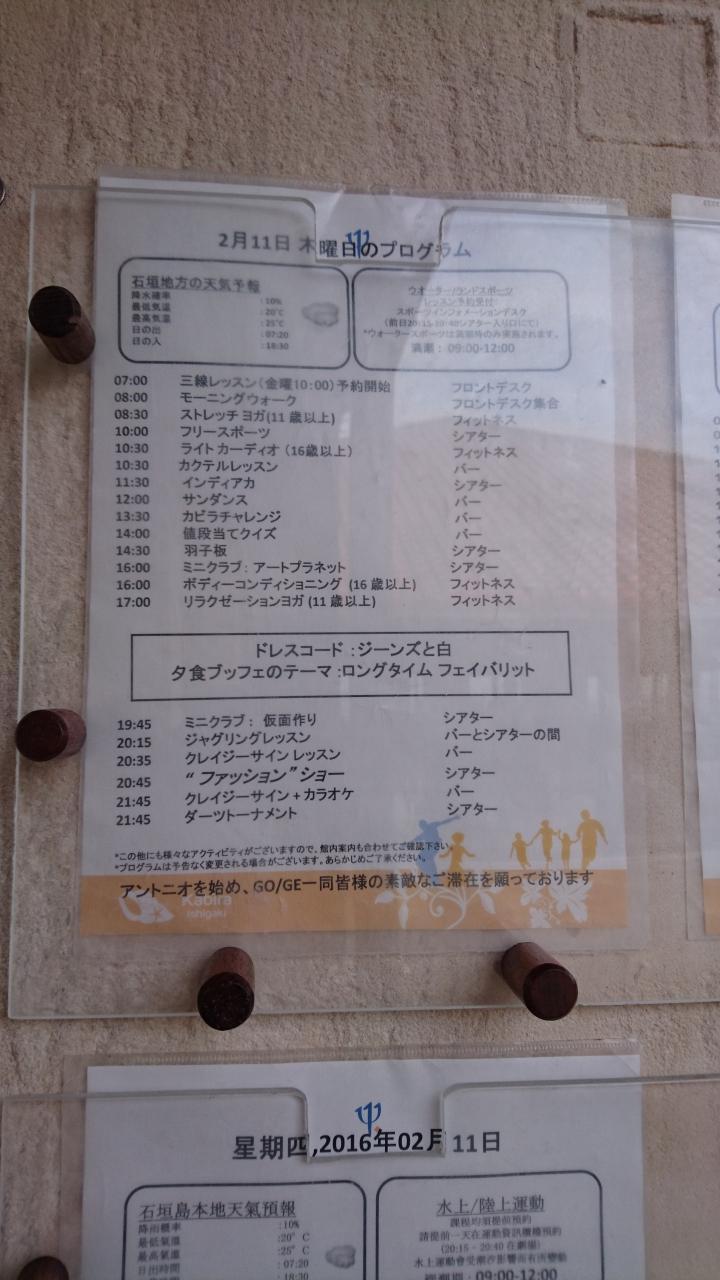 2月11日 木曜日のプログラム
石垣地方の天気予報
降水確率 :10%
最低気温 :20℃
最高気温 :25℃
日の出 :07:20
日の入 :18:30
ウオーター/ランドスポーツ
レッスン予約受付:
スポーツインフォメーションデスク
(前日20:15-20:40シアター入り口にて)
*ウォータースポーツは満潮時のみ実施されます。
満潮: 09:00-12:00
07:00 三線レッスン(金曜10:00)予約開始 フロントデスク
08:00 モーニングウォーク フロントデスク集合
08:30 ストレッチヨガ(11 歳以上) フィットネス
10:00 フリースポーツ シアター
10:30 ライトカーディオ (16歳以上) フィットネス
10:30 カクテルレッスン バー
11:30 インディアカ シアター
12:00 サンダンス バー
13:30 カビラチャレンジ バー
14:00 値段当てクイズ バー
14:30 羽子板 シアター
16:00 ミニクラブ: アートプラネット シアター
16:00 ボディーコンディショニング (16 歳以上) フィットネス
17:00 リラクゼーションヨガ (11 歳以上) フィットネス
ドレスコード :ジーンズと白
夕食ブッフェのテーマ :ロングタイム フェイバリット
19:45 ミニクラブ: 仮面作り シアター
20:15 ジャグリングレッスン バーとシアターの間
20:35 クレイジーサイン レッスン バー
20:45 “ファッション”ショー シアター
21:45 クレイジーサイン + カラオケ バー
21:45 ダーツトーナメント シアター
*この他にも様々なアクティビティがございますので、館内案内も合わせてご確認下さい。
*プログラムは予告なく変更される場合がございます。あらかじめご了承ください。
アントニオを始め、GO/GE一同皆様の素敵なご滞在を願っております
Kabira
Ishigaki
星期四,2016年02月11日
石垣島本地天氣預報
降雨概率 :10%
最低氣溫 :20° C
最高氣溫 :25° C
日出時間 :07:20
:18:30
水上/陸上運動
課程均須提前預約
請提前一天在運動資訊櫃檯預約
(20:15 - 20:40 在劇場)
水上運動會受潮汐影響而有所變動
09:00-12:00